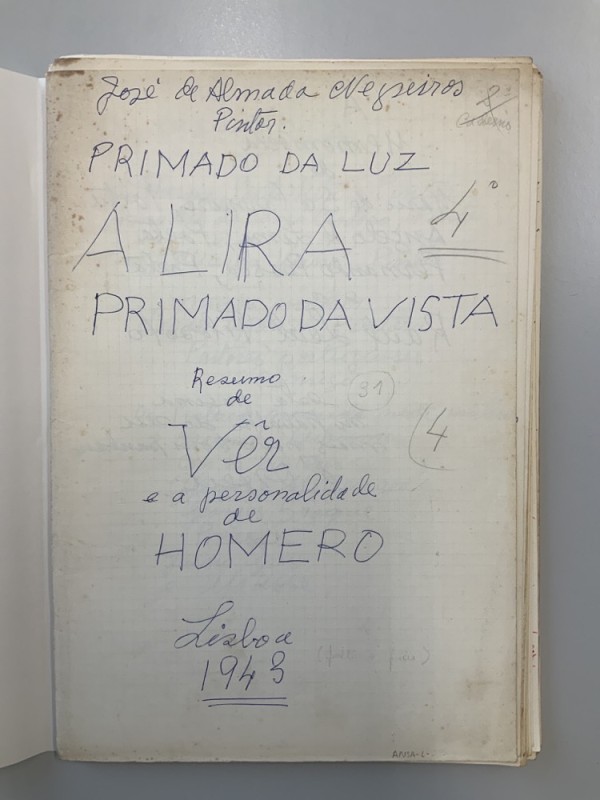 José de Almada Negreiros
Pintor.
PRIMADO DA LUZ
A LIRA
4º
PRIMADO DA VISTA
Resumo
de
31
Vêr
(4
e a personalidade
de
HOMERO
Lisboa
1943